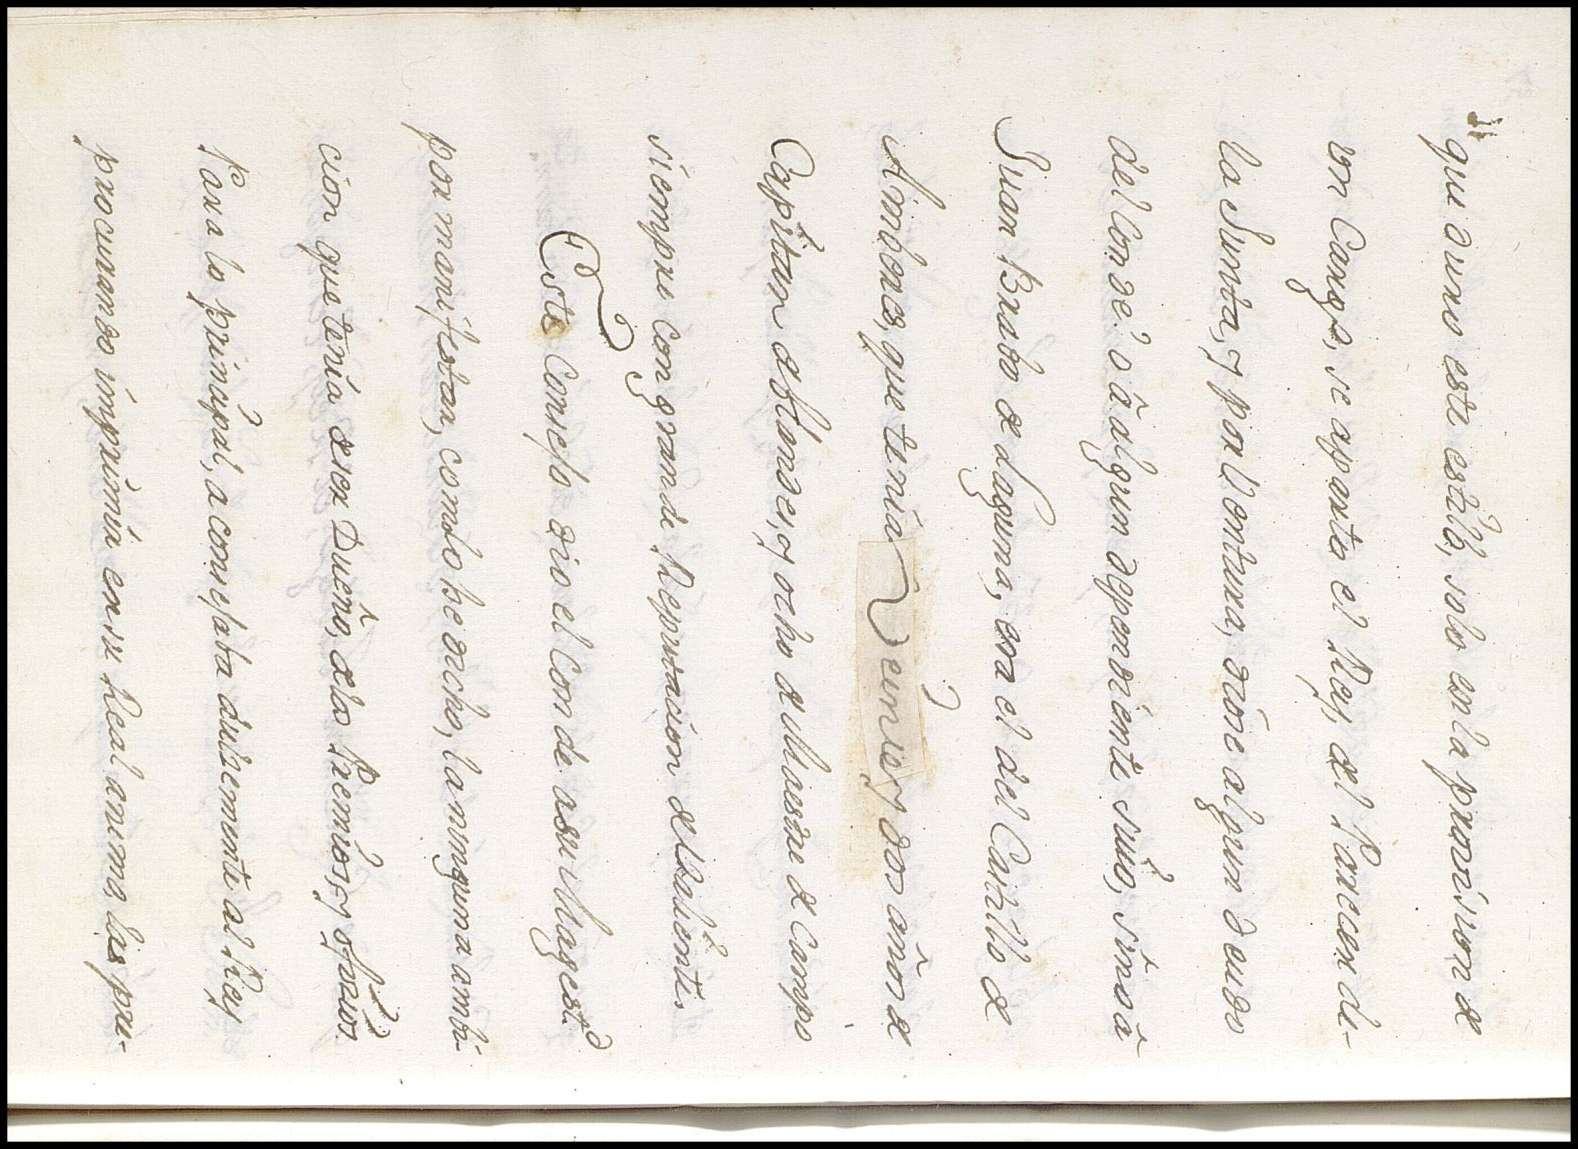 que aunno esta estilo, solo en la provision de
un Cargo, se aparto el Rey del Parecer de
la Junta, y por Ventura, dióse algun Deudo
del Conde? ò à algun dependiente suío, sino à
Juan Brabo de Laguna, era el del Castillo de
Amberes, que tenia Veinte y dos años de
Capitan de flandes, y ocho de Maestre de Campo
siempre con grande Reputacion de Valiente.
Este Consejo dio el Conde a su Magest.d
por manifestar, como he dicho, la ninguna ambi-
cion que tenia de ser Dueño, de los Premios, y oficios.
Para lo principal, aconsejaba dulzemente al Rey
procurando imprimir en su Real animo, las pru-